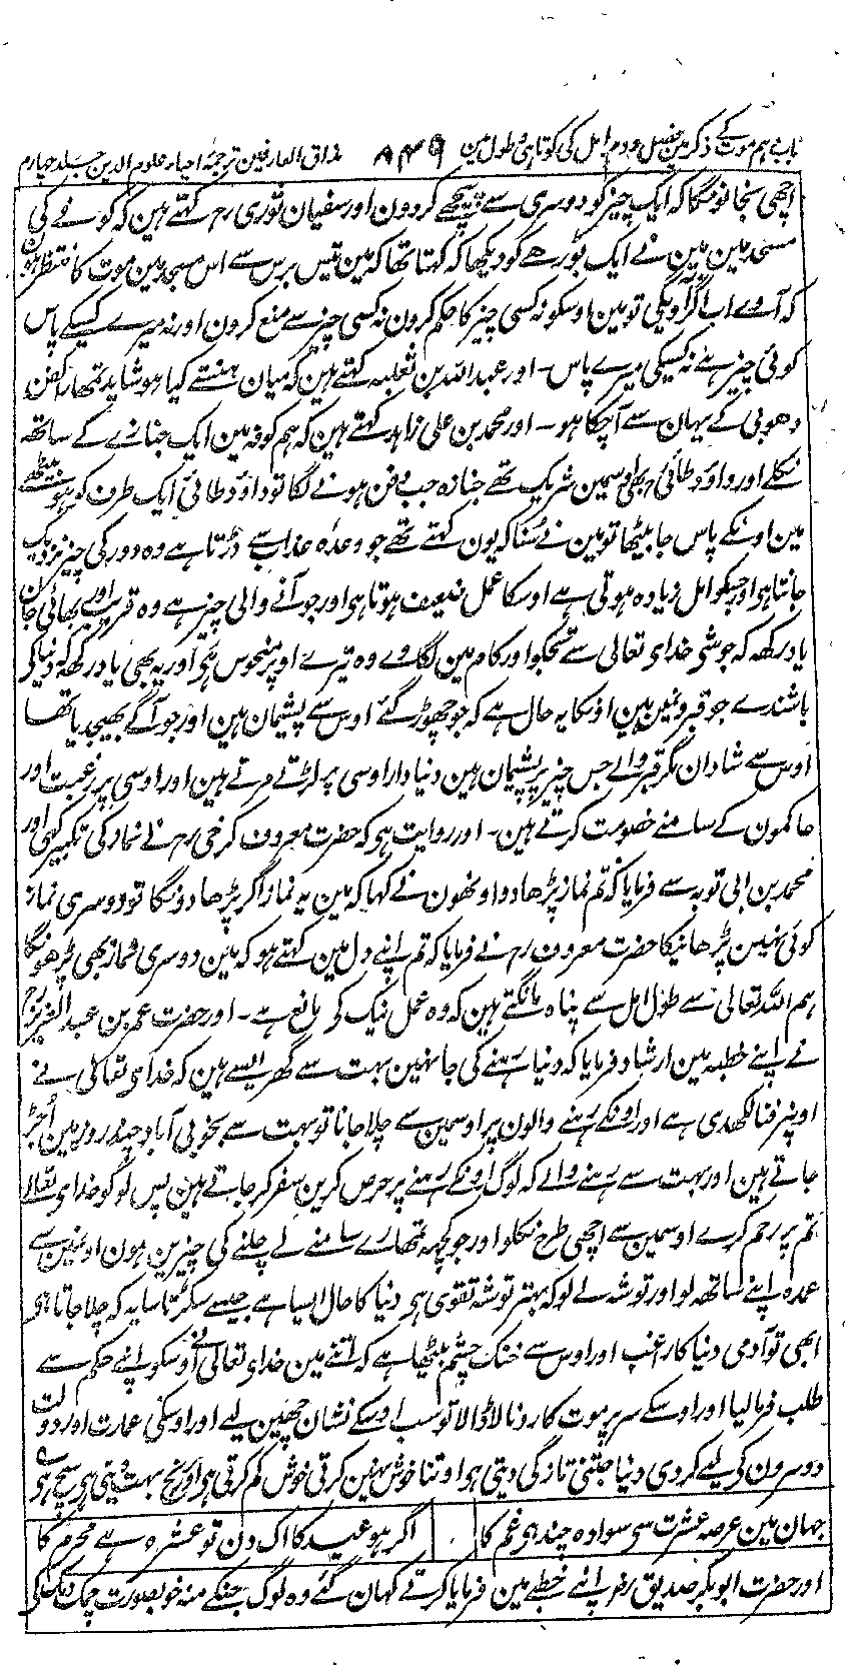 باب دہم موت کے ذکر مین فصل دوم امل کی کوتاہی و طول مین ۸۴۹ مذاق العارفین ترجمہ احیاء علوم الدین جلد چہارم
اچھی سنجانونگا کہ ایک چیز کو دوسری سے پیچھے کردون اور سفیان ثوری رح کہتے ہین کہ کوفے کی
مسجد مین مین نے ایک بوڑھے کو دیکھا کہ کہتا تھا کہ مین تیس برس سے اس مسجد مین موت کا منتظر ہون
کہ آوے اب اگر آویگی تو مین اوسکو نہ کسی چیز کا حکم کرون نہ کسی چیز سے منع کرون اور نہ میرے کسیکے پاس
کوئی چیز ہے نہ کسیکی میرے پاس - اور عبداللہ بن ثعلبہ کہتے ہین کہ میان ہنستے کیا ہو شاید تمھارا کفن
دھوبی کے یہان سے آچکا ہو - اور محمد بن علی زاہد کہتے ہین کہ ہم کوفہ مین ایک جنازے کے ساتھ
نکلے اور داؤد طائی بھی اوسمین شریک تھے جنازہ جب دفن ہونے لگا تو داؤد طائی ایک طرف کو ہو بیٹھے
مین اونکے پاس جا بیٹھا تو مین نے سنا کہ یون کہتے تھے جو وعدہ عذاب سے ڈرتا ہے وہ دور کی چیز نزدیک
جانتا ہو اور جسکو امل زیادہ ہوتی ہے اوسکا عمل ضعیف ہوتا ہو اور جو آنے والی چیز ہے وہ قریب ہے اور بھائی جان
یاد رکھہ کہ جو شی خدای تعالی سے تجکو اور کام مین لگاوے وہ تیرے اوپر منحوس ہو اور یہ بھی یاد رکھہ کہ دنیا کے
باشندے جو قبرونمین ہین اونکا یہ حال ہے کہ جو چھوڑ گئے اوس سے پشیمان ہین اور جو آگے بھیجدیا تھا
اوس سے شادان مگر قبر والے جس چیز پر پشیمان ہین دنیا دار اوسی پر لڑتے مرتے ہین اور اوسی پر رغبت اور
حاکمون کے سامنے خصومت کرتے ہین - اور روایت ہو کہ حضرت معروف کرخی رح نے نماز کی تکبیر کہی اور
محمد بن ابی توبہ سے فرمایا کہ تم نماز پڑھادو اونھون نے کہا کہ مین یہ نماز اگر پڑھادونگا تو دوسری نماز
کوئی نہین پڑھانیکا حضرت معروف رح نے فرمایا کہ تم اپنے دل مین کہتے ہو کہ مین دوسری نماز بھی پڑھونگا
ہم اللہ تعالی سے طول امل سے پناہ مانگتے ہین کہ وہ عمل نیک کی مانع ہے - اور حضرت عمر بن عبدالعزیز رح
نے اپنے خطبہ مین ارشاد فرمایا کہ دنیا رہنے کی جا نہین بہت سے گھر ایسے ہین کہ خدای تعالی نے
اونپر فنا لکھدی ہے اور اونکے رہنے والون پر اوسمین سے چلا جانا تو بہت سے بخوبی آباد چند روز مین اُجڑ
جاتے ہین اور بہت سے رہنے والے کہ لوگ اونکے رہنے پر حرص کرین سفر کر جاتے ہین پس لوگو خدای تعالی
تم پر رحم کرے اوسمین سے اچھی طرح نکلو اور جو کچھہ تمھارے سامنے لے چلنے کی چیزین ہون اونمین سے
عمدہ اپنے ساتھہ لو اور توشہ لے لو کہ بہتر توشہ تقوی ہو دنیا کا حال ایسا ہے جیسے سکڑتا سایہ کہ چلا جاتا ہو
ابھی تو آدمی دنیا کا راغب اور اوس سے خنک چشم بیٹھا ہے کہ اتنے مین خدای تعالی نے اوسکو اپنے حکم سے
طلب فرمالیا اور اوسکے سر پر موت کا روز لا ڈالا تو سب اوسکے نشان چھین لیے اور اوسکی عمارت اور دولت
دوسرون کی لیے کردی دنیا جتنی تازگی دیتی ہو اوتنا خوش نہین کرتی خوش کم کرتی ہو اور رنج بہت دیتی ہو سچ ہے
جہان مین عرصہ عشرت سی سوا دہ چند ہی غم کا اگر ہو عید کا اک دن تو عشرہ ہے محرم کا
اور حضرت ابوبکر صدیق رض اپنے خطبے مین فرمایا کرتے کہان گئے وہ لوگ جنکے منہ خوبصورت چمک دمک کی